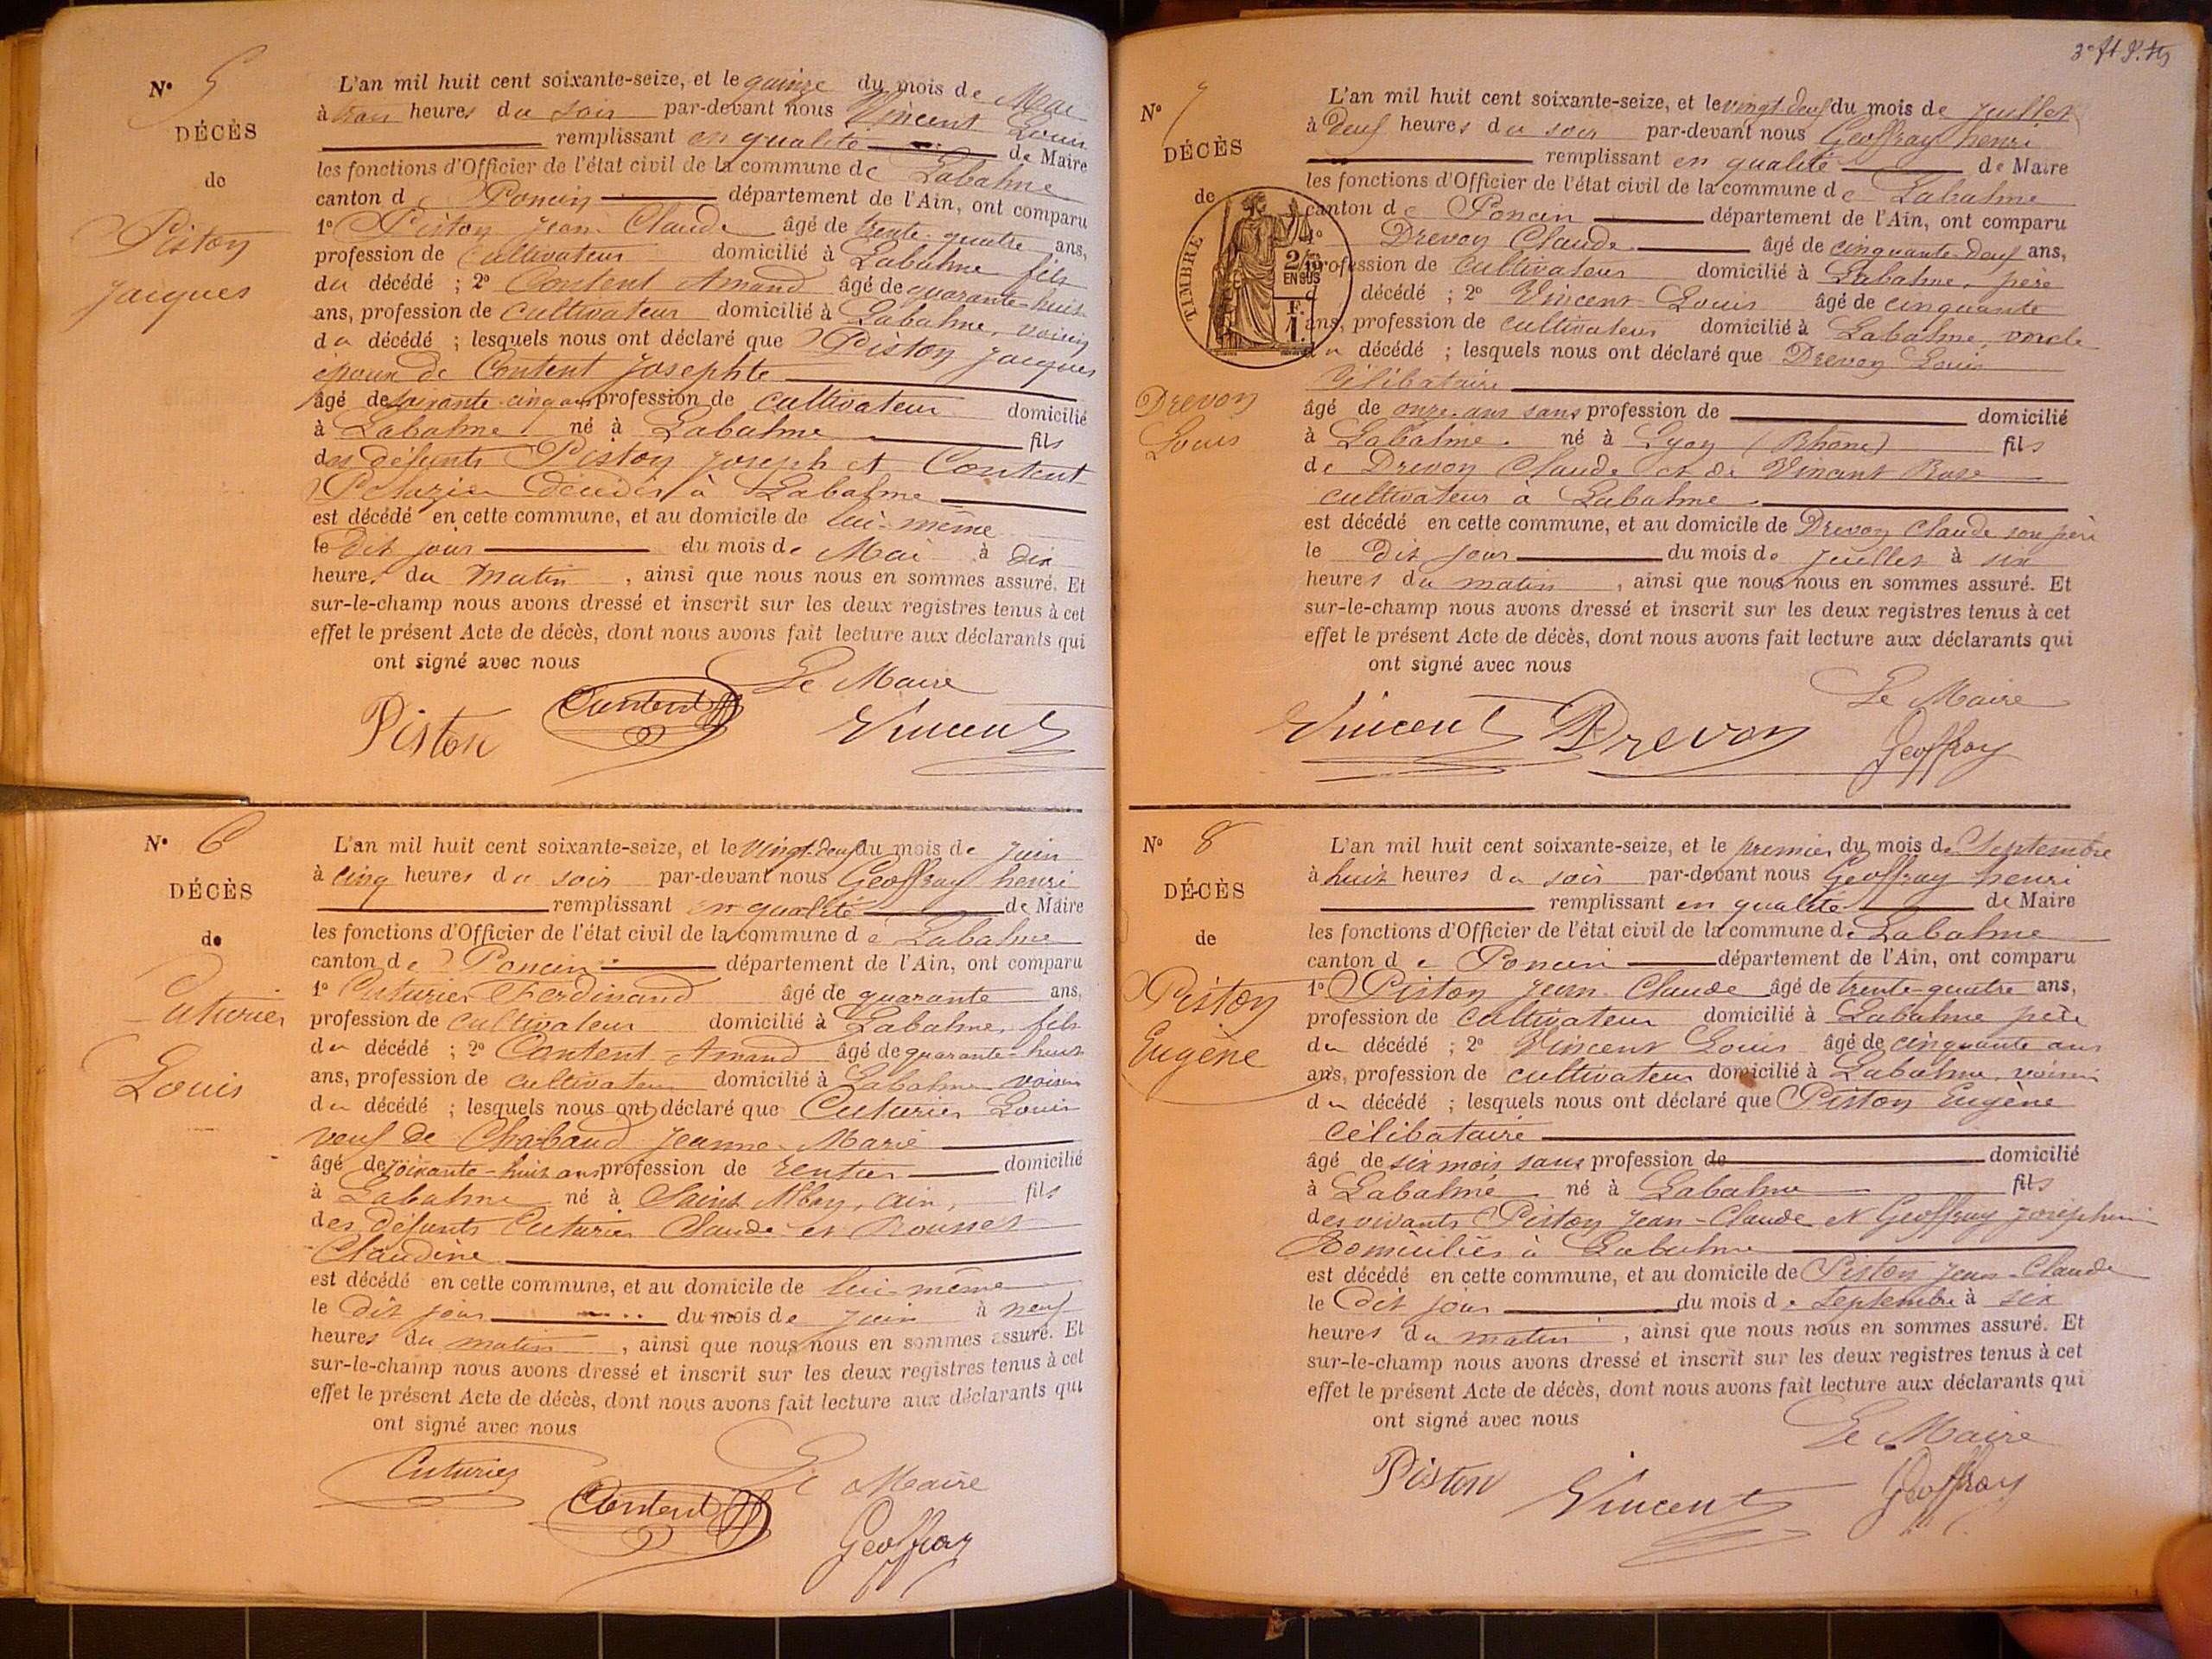 N° 5
DÉCÈS
de
Piston
Jacques
L'an mil huit cent soixante-seize, et le quinze du mois de Mai
à trois heures du soir par-devant nous Vincent Louis
remplissant en qualité de Maire
les fonctions d'Officier de l'état civil de la commune de Labalme
canton de Poncin département de l'Ain, ont comparu
1° Piston Jean Claude âgé de trente-quatre ans,
profession de Cultivateur domicilié à Labalme fils
du décédé ; 2° Content Amand âgé de quarante-huit
ans, profession de Cultivateur domicilié à Labalme, voisin
du décédé ; lesquels nous ont déclaré que Piston Jacques
époux de Content Josephte
âgé de soixante cinq ans profession de cultivateur domicilié
à Labalme né à Labalme fils
des défunts Piston Joseph et Content
décédés à Labalme
est décédé en cette commune, et au domicile de lui-même
le dit jour du mois de Mai à dix
heures du matin, ainsi que nous nous en sommes assuré. Et
sur-le-champ nous avons dressé et inscrit sur les deux registres tenus à cet
effet le présent Acte de décès, dont nous avons fait lecture aux déclarants qui
ont signé avec nous
Le Maire
Piston Content Vincent
N° 6
DÉCÈS
de
Cuturier
Louis
L'an mil huit cent soixante-seize, et le vingt-deux du mois de Juin
à cinq heures du soir par-devant nous Geoffray henri
remplissant en qualité de Maire
les fonctions d'Officier de l'état civil de la commune de Labalme
canton de Poncin département de l'Ain, ont comparu
1° Cuturier Ferdinand âgé de quarante ans,
profession de cultivateur domicilié à Labalme, fils
du décédé ; 2° Content Amand âgé de quarante-huit
ans, profession de cultivateur domicilié à Labalme voisin
du décédé ; lesquels nous ont déclaré que Cuturier Louis
veuf de Chabaud Jeanne-Marie
âgé de soixante-huit ans profession de rentier domicilié
à Labalme né à Saint Alban, ain, fils
des défunts Cuturier Claude et Rousset
Claudine
est décédé en cette commune, et au domicile de lui-même
le dit jour du mois de Juin à neuf
heures du matin, ainsi que nous nous en sommes assuré. Et
sur-le-champ nous avons dressé et inscrit sur les deux registres tenus à cet
effet le présent Acte de décès, dont nous avons fait lecture aux déclarants qui
ont signé avec nous
Le Maire
Cuturier Content Geoffray
N° 7
DÉCÈS
de
TIMBRE
2/10 EN SUS
F.
1.
Drevon
Louis
L'an mil huit cent soixante-seize, et le vingt-deux du mois de Juillet
à deux heures du soir par-devant nous Geoffray henri
remplissant en qualité de Maire
les fonctions d'Officier de l'état civil de la commune de Labalme
canton de Poncin département de l'Ain, ont comparu
1° Drevon Claude âgé de cinquante-deux ans,
profession de Cultivateur domicilié à Labalme, père
d décédé ; 2° Vincent Louis âgé de cinquante
ans, profession de cultivateur domicilié à Labalme, oncle
du décédé ; lesquels nous ont déclaré que Drevon Louis
célibataire
âgé de onze ans sans profession de domicilié
à Labalme. né à Lyon (Rhone) fils
de Drevon Claude et de Vincent Rose
cultivateur a Labalme
est décédé en cette commune, et au domicile de Drevon Claude son père
le dit jour du mois de juillet à six
heures du matin, ainsi que nous nous en sommes assuré. Et
sur-le-champ nous avons dressé et inscrit sur les deux registres tenus à cet
effet le présent Acte de décès, dont nous avons fait lecture aux déclarants qui
ont signé avec nous
Le Maire
Vincent Drevon Geoffray
N° 8
DÉCÈS
de
Piston
Eugène
L'an mil huit cent soixante-seize, et le premier du mois de Septembre
à huit heures du soir par-devant nous Geoffray henri
remplissant en qualité de Maire
les fonctions d'Officier de l'état civil de la commune de Labalme
canton de Poncin département de l'Ain, ont comparu
1° Piston Jean-Claude âgé de trente-quatre ans,
profession de cultivateur domicilié à Labalme père
du décédé ; 2° Vincent Louis âgé de cinquante ans
ans, profession de cultivateur domicilié à Labalme, voisin
du décédé ; lesquels nous ont déclaré que Piston Eugène
célibataire
âgé de six mois sans profession de domicilié
à Labalme né à Labalme fils
des vivants Piston Jean-Claude et Geoffray Joséphine
Domiciliés à Labalme
est décédé en cette commune, et au domicile de Piston Jean-Claude
le dit jour du mois de Septembre à six
heures du matin, ainsi que nous nous en sommes assuré. Et
sur-le-champ nous avons dressé et inscrit sur les deux registres tenus à cet
effet le présent Acte de décès, dont nous avons fait lecture aux déclarants qui
ont signé avec nous
Le Maire
Piston Vincent Geoffray